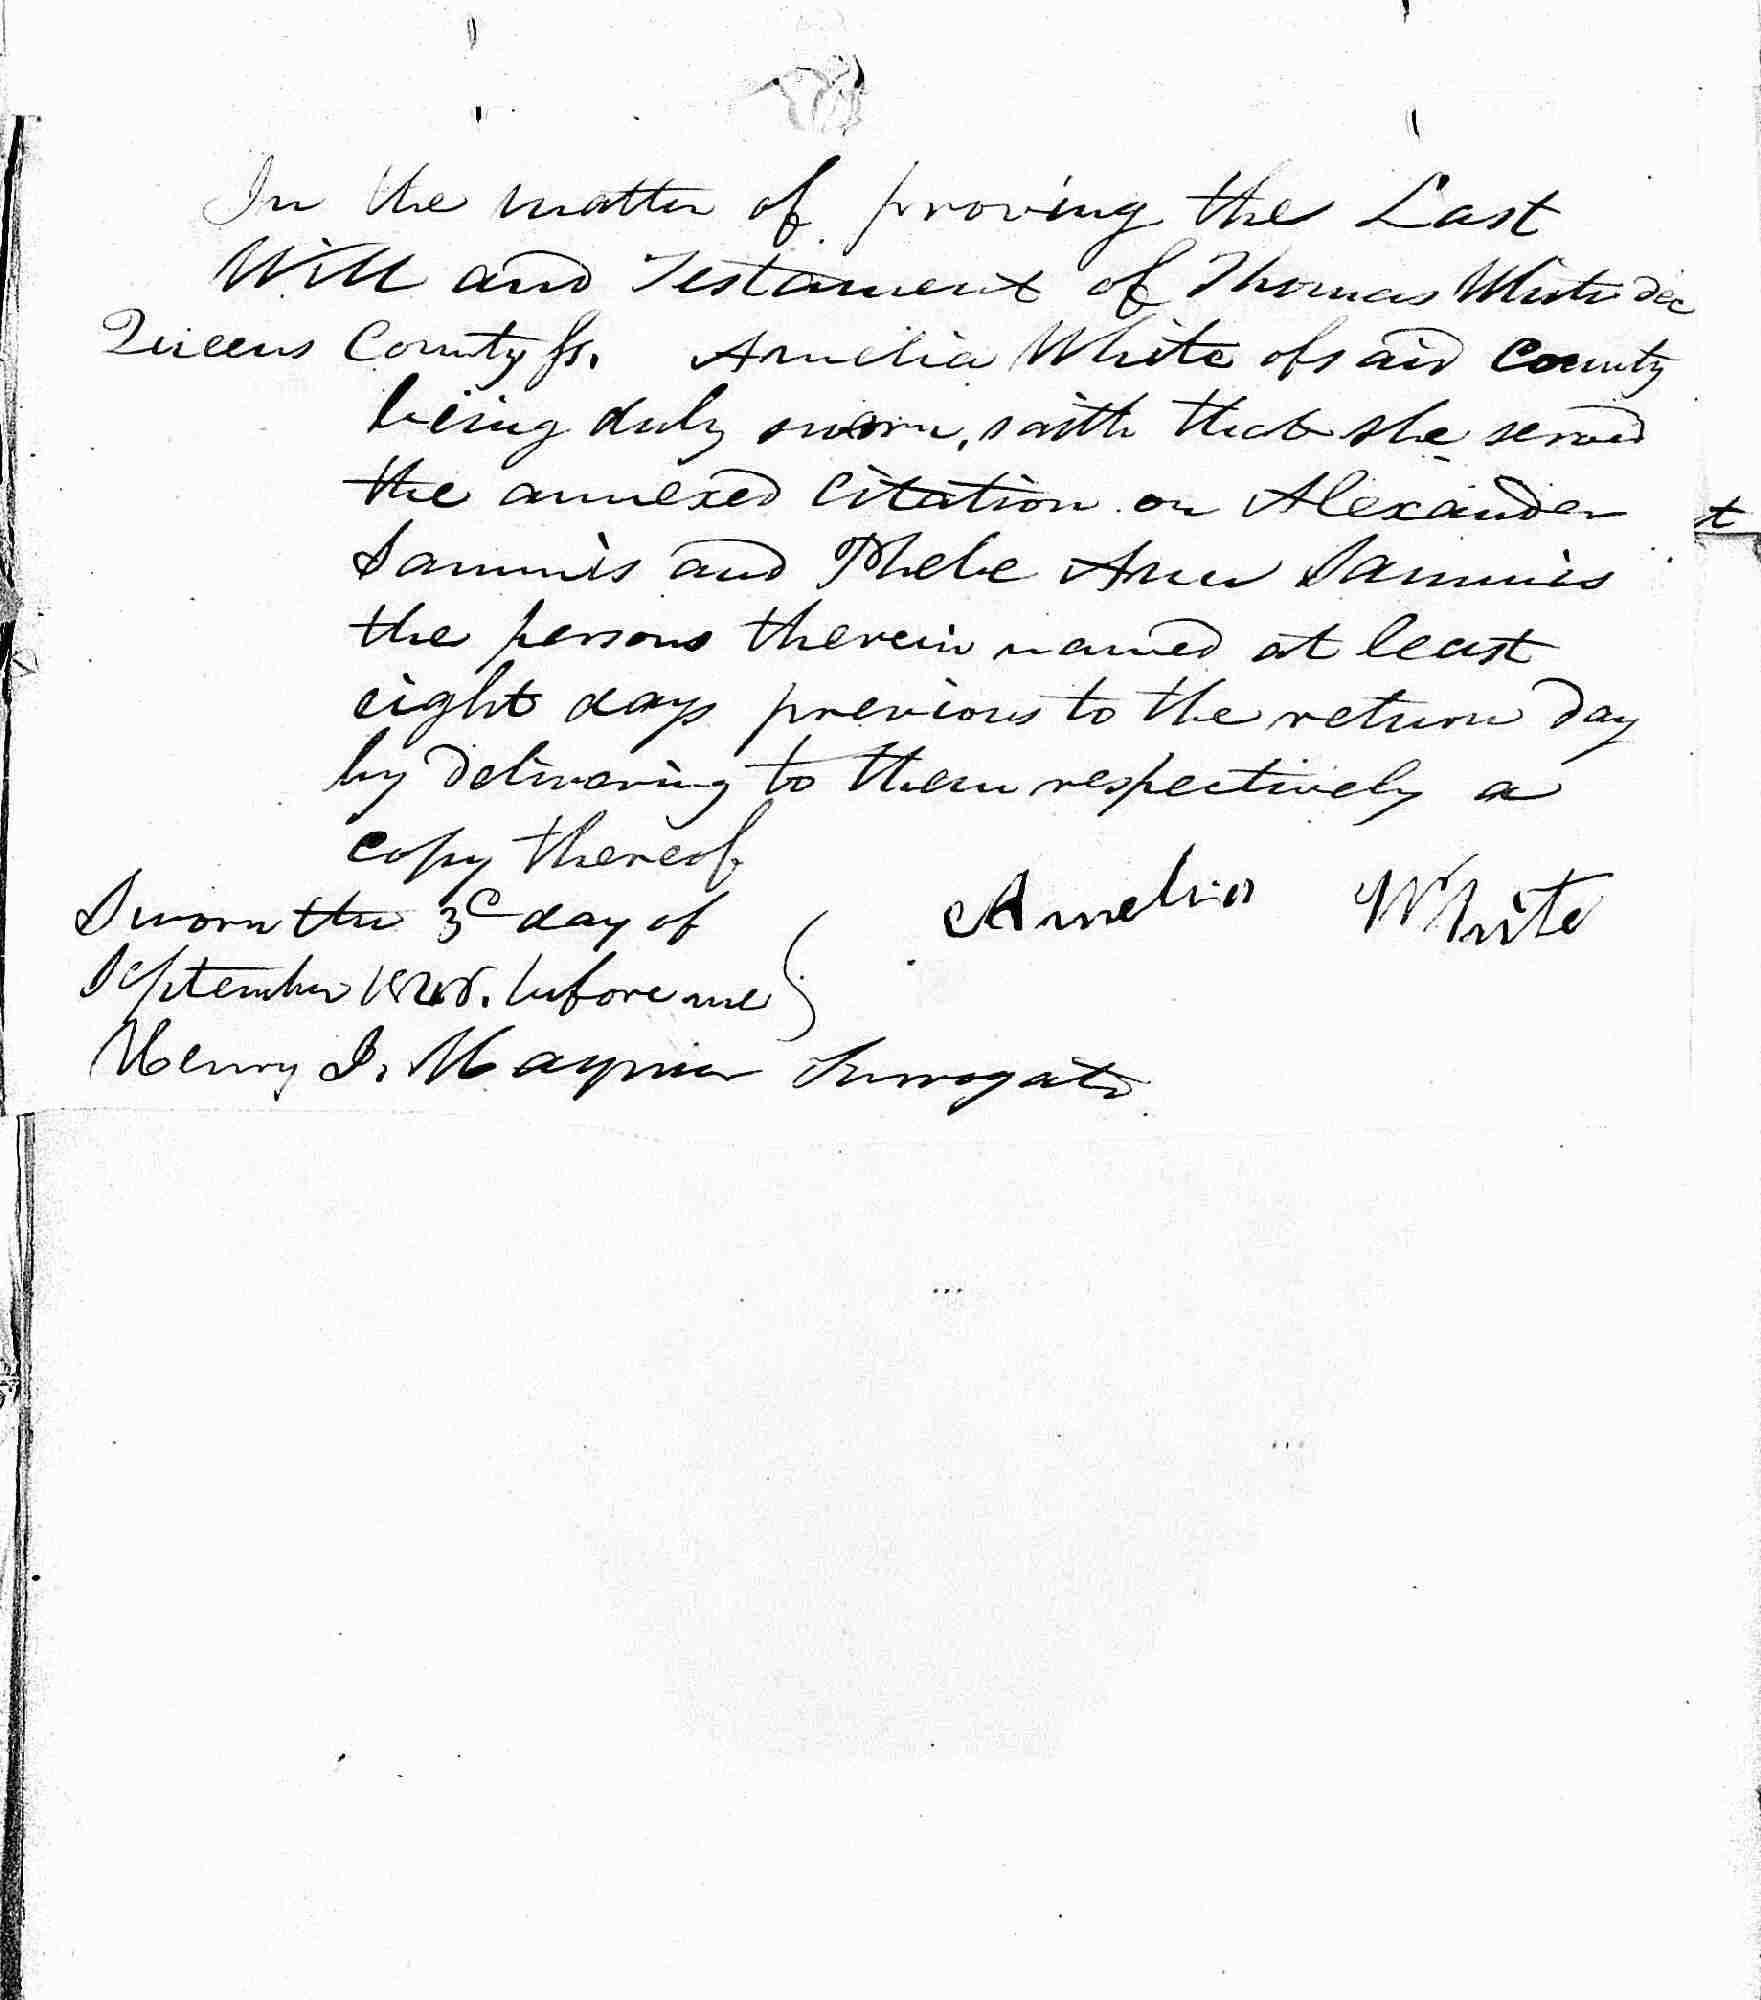 In the matter of proving the Last
Will and Testament of Thomas White dec
Queens County ss. Amelia White of said County
being duly sworn, saith that she served
the annexed Citation on Alexander
Sammis and Phebe Ann Sammis
the persons therein named at least
eight days previous to the return day
by delivering to them respectively a
copy thereof
Amelia White
Sworn the 3d day of
September before me
Henry I. Hagner Surrogate
t